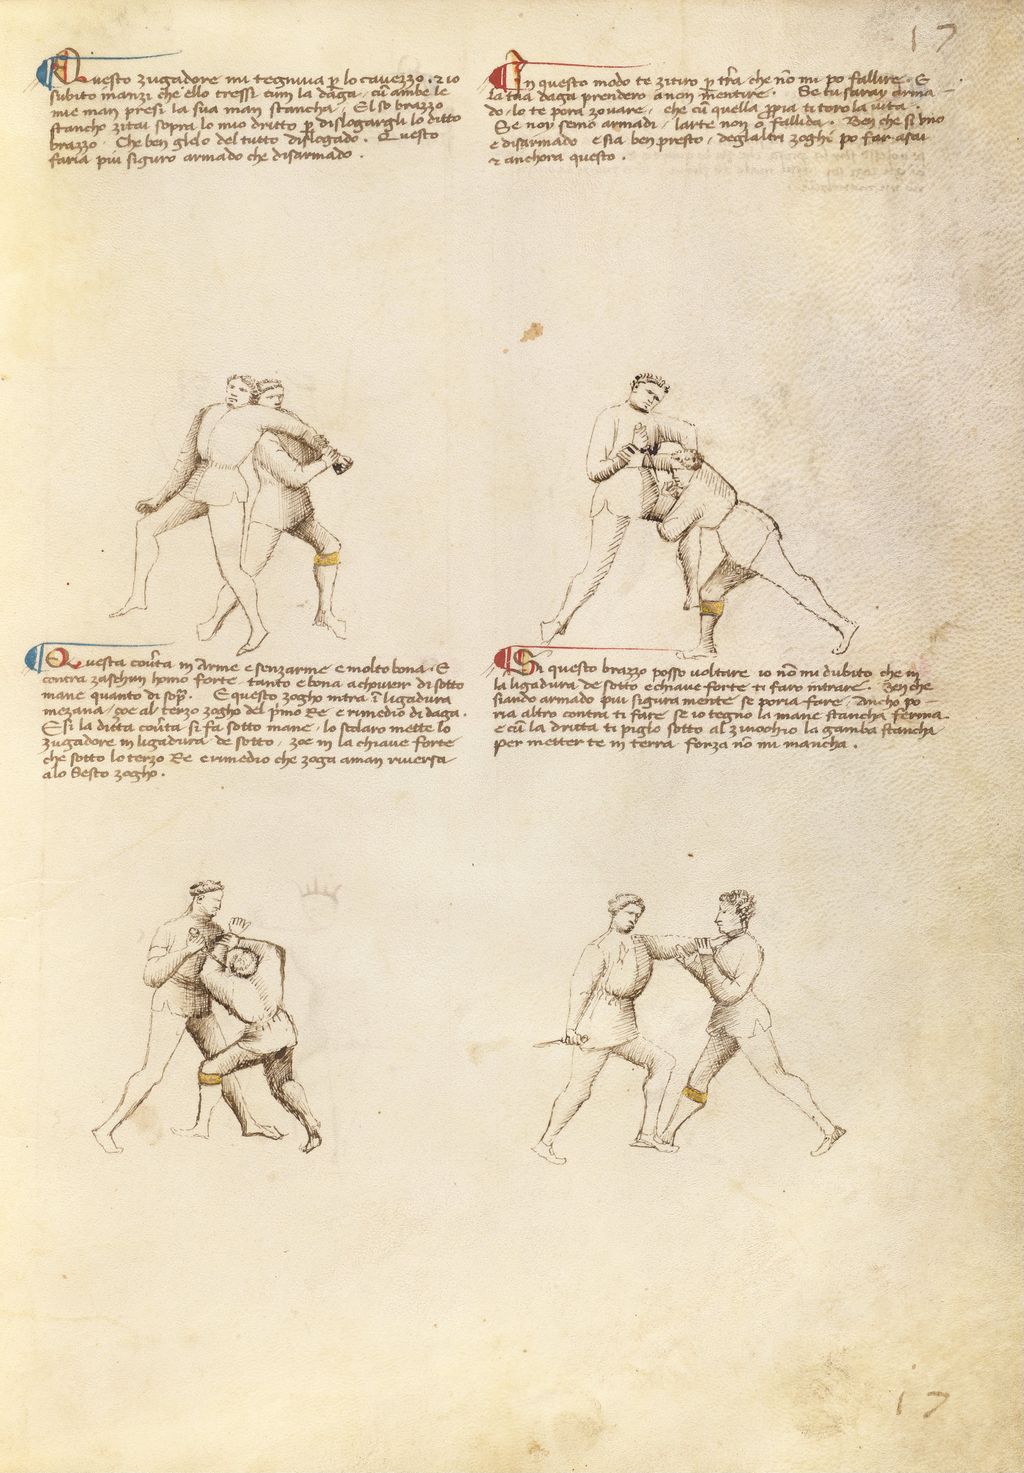 17
Questo zugadore mi tegniva p lo cavezzo. 2 io
subito inanzi che ello tressi cum la daga / cū ambe le
mie man presi la sua man stancha / El so brazzo
stancho zitai sopra lo mio dritto p dislogargli lo ditto
brazzo. Che ben glelo del tutto dislogado. Questo
faria piu siguro armado che disarmado.
In questo modo te zitiro p trā che nō mi po fallire. E
la tua daga prendero a non mentire. Se tu saray arma
do / lo te pora zovare / che cū quella ppia ti toro la vita.
Se noy semo armadi / larte non e fallida. Ben che si uno
e disarmado e sia ben presto / deglaltri zoghi po far asai
2 anchora questo.
Questa covta in arme e senzarme e molto bona. E
contra zaschun homo forte tanto e bona a chovrir di sotto
mane quanto di sopa. E questo zogho intra ī ligadura
mezana / çoe al terzo zogho del pmo Re e rimedio di daga.
E si la ditta covta si fa sotto mane / lo scolaro mette lo
zugadore in ligadura de sotto / zoe in la chiave forte
che sotto lo terzo Re e rimedio che zoga a man riversa
a lo Sesto zogho.
Si questo brazzo posso voltare io nō mi dubito che in
la ligadura de sotto e chiave forte ti faro intrare. Ben che
siando armado piu siguramente se poria fare / Ancho po-
ria altro contra ti fare se io tegno la mane stancha ferma
e cū la dritta ti piglo sotto al zinochio la gamba stancha
per metter te in terra forza nō mi mancha.
17